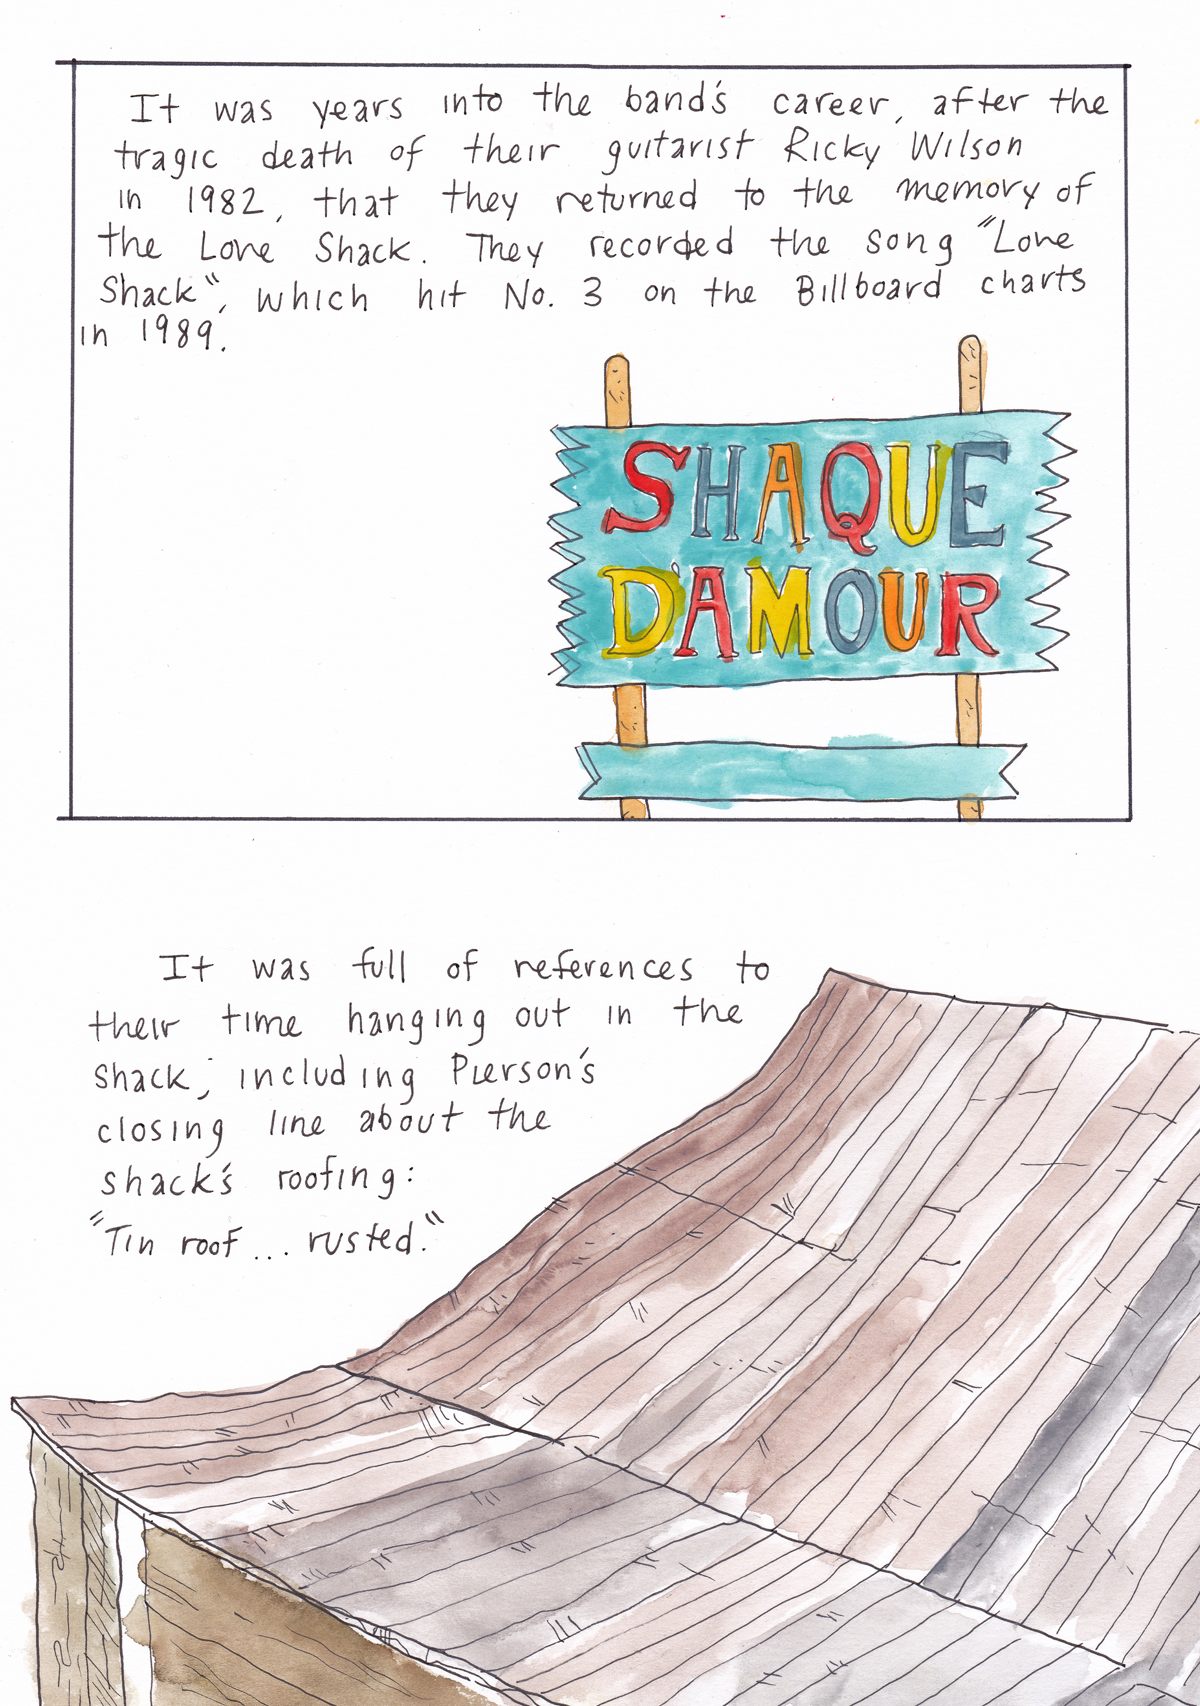 It was years into the band's career, after the
tragic death of their guitarist Ricky Wilson
in 1982, that they returned to the memory of
the Love Shack. They recorded the song "Love
Shack", which hit No. 3 on the Billboard charts
in 1989.
SHAQUE
D'AMOUR
It was full of references to
their time hanging out in the
shack, including Pierson's
closing line about the
shack's roofing:
"Tin roof... rusted."